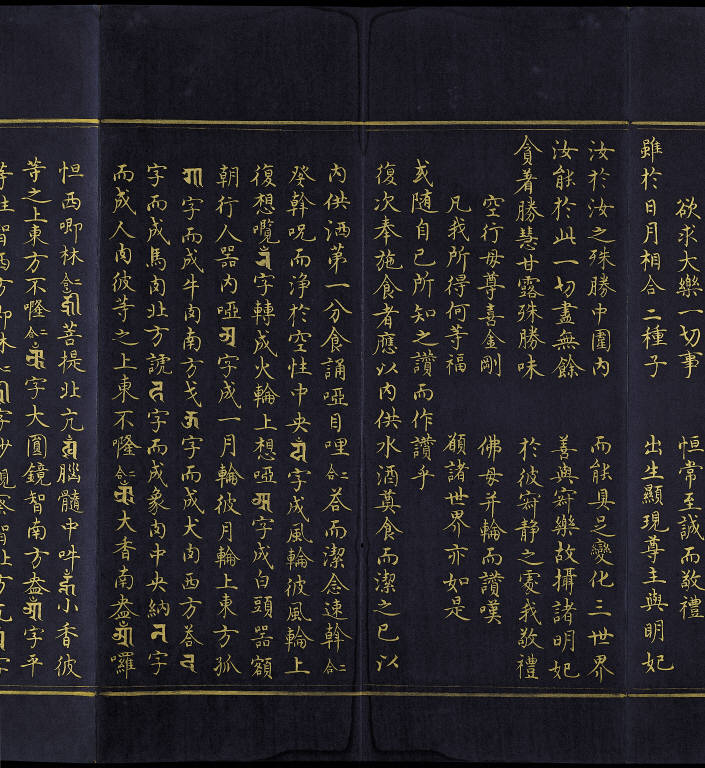 欲求大樂一切事 恒常至誠而敬禮
雖於日月相合二種子 出生顯現尊主與明妃
汝於汝之殊勝中圍內 而能具足變化三世界
汝能於此一切盡無餘 善與寂樂故攝諸明妃
貪着勝慧甘露殊勝味 於彼寂静之處我敬禮
空行母尊喜金剛 佛母并輪而讚嘆
凡我所得何等福 願諸世界亦如是
或随自己所知之讚而作讚乎
復次奉施食者應以內供水酒奠食而潔之已以
內供洒第一分食誦啞目哩合二荅而潔念速斡合二
癸斡呪而浄於空性中央字成風輪彼風輪上
復想囕字轉成火輪上想啞字成白頭器額
朝行人器內啞字成一月輪彼月輪上東方孤
字而成牛肉南方戈字而成犬肉西方荅
字而成馬肉北方謊字而成象肉中央納字
而成人肉彼等之上東不隆合二大香南盎囉
怛西唧林合二菩提北亢腦髓中吽小香彼
等之上東方不隆合二字大圓鏡智南方盎字平
等性智西方唧林合二字妙觀察智北方亢字